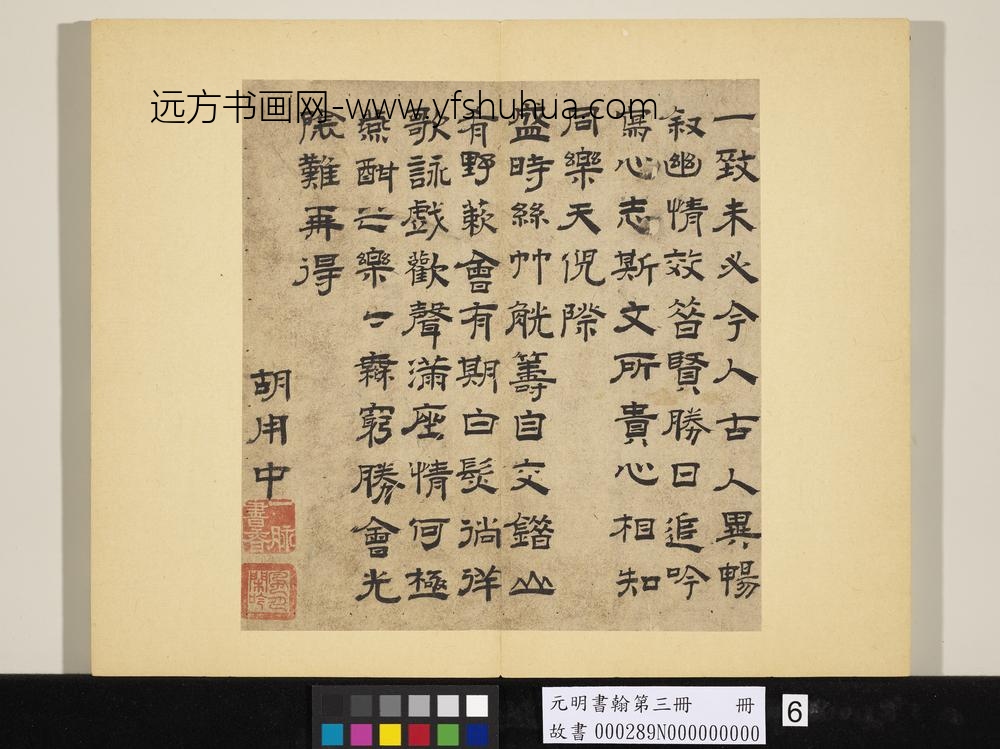 远方书画网-www.yfshuhua.com
一致未必今人古人異暢
敍幽情效昝賢勝日追吟
寫心志斯文所貴心相知
同樂天倪際
盛時絲竹觥籌自交錯山
有野蔌會有期白髮徜徉
歌詠戲歡聲滿座情何極
燕酣之樂樂無窮勝會光
陰難再得
胡用中
元明書翰第三冊 冊
故書 000289N000000000
6